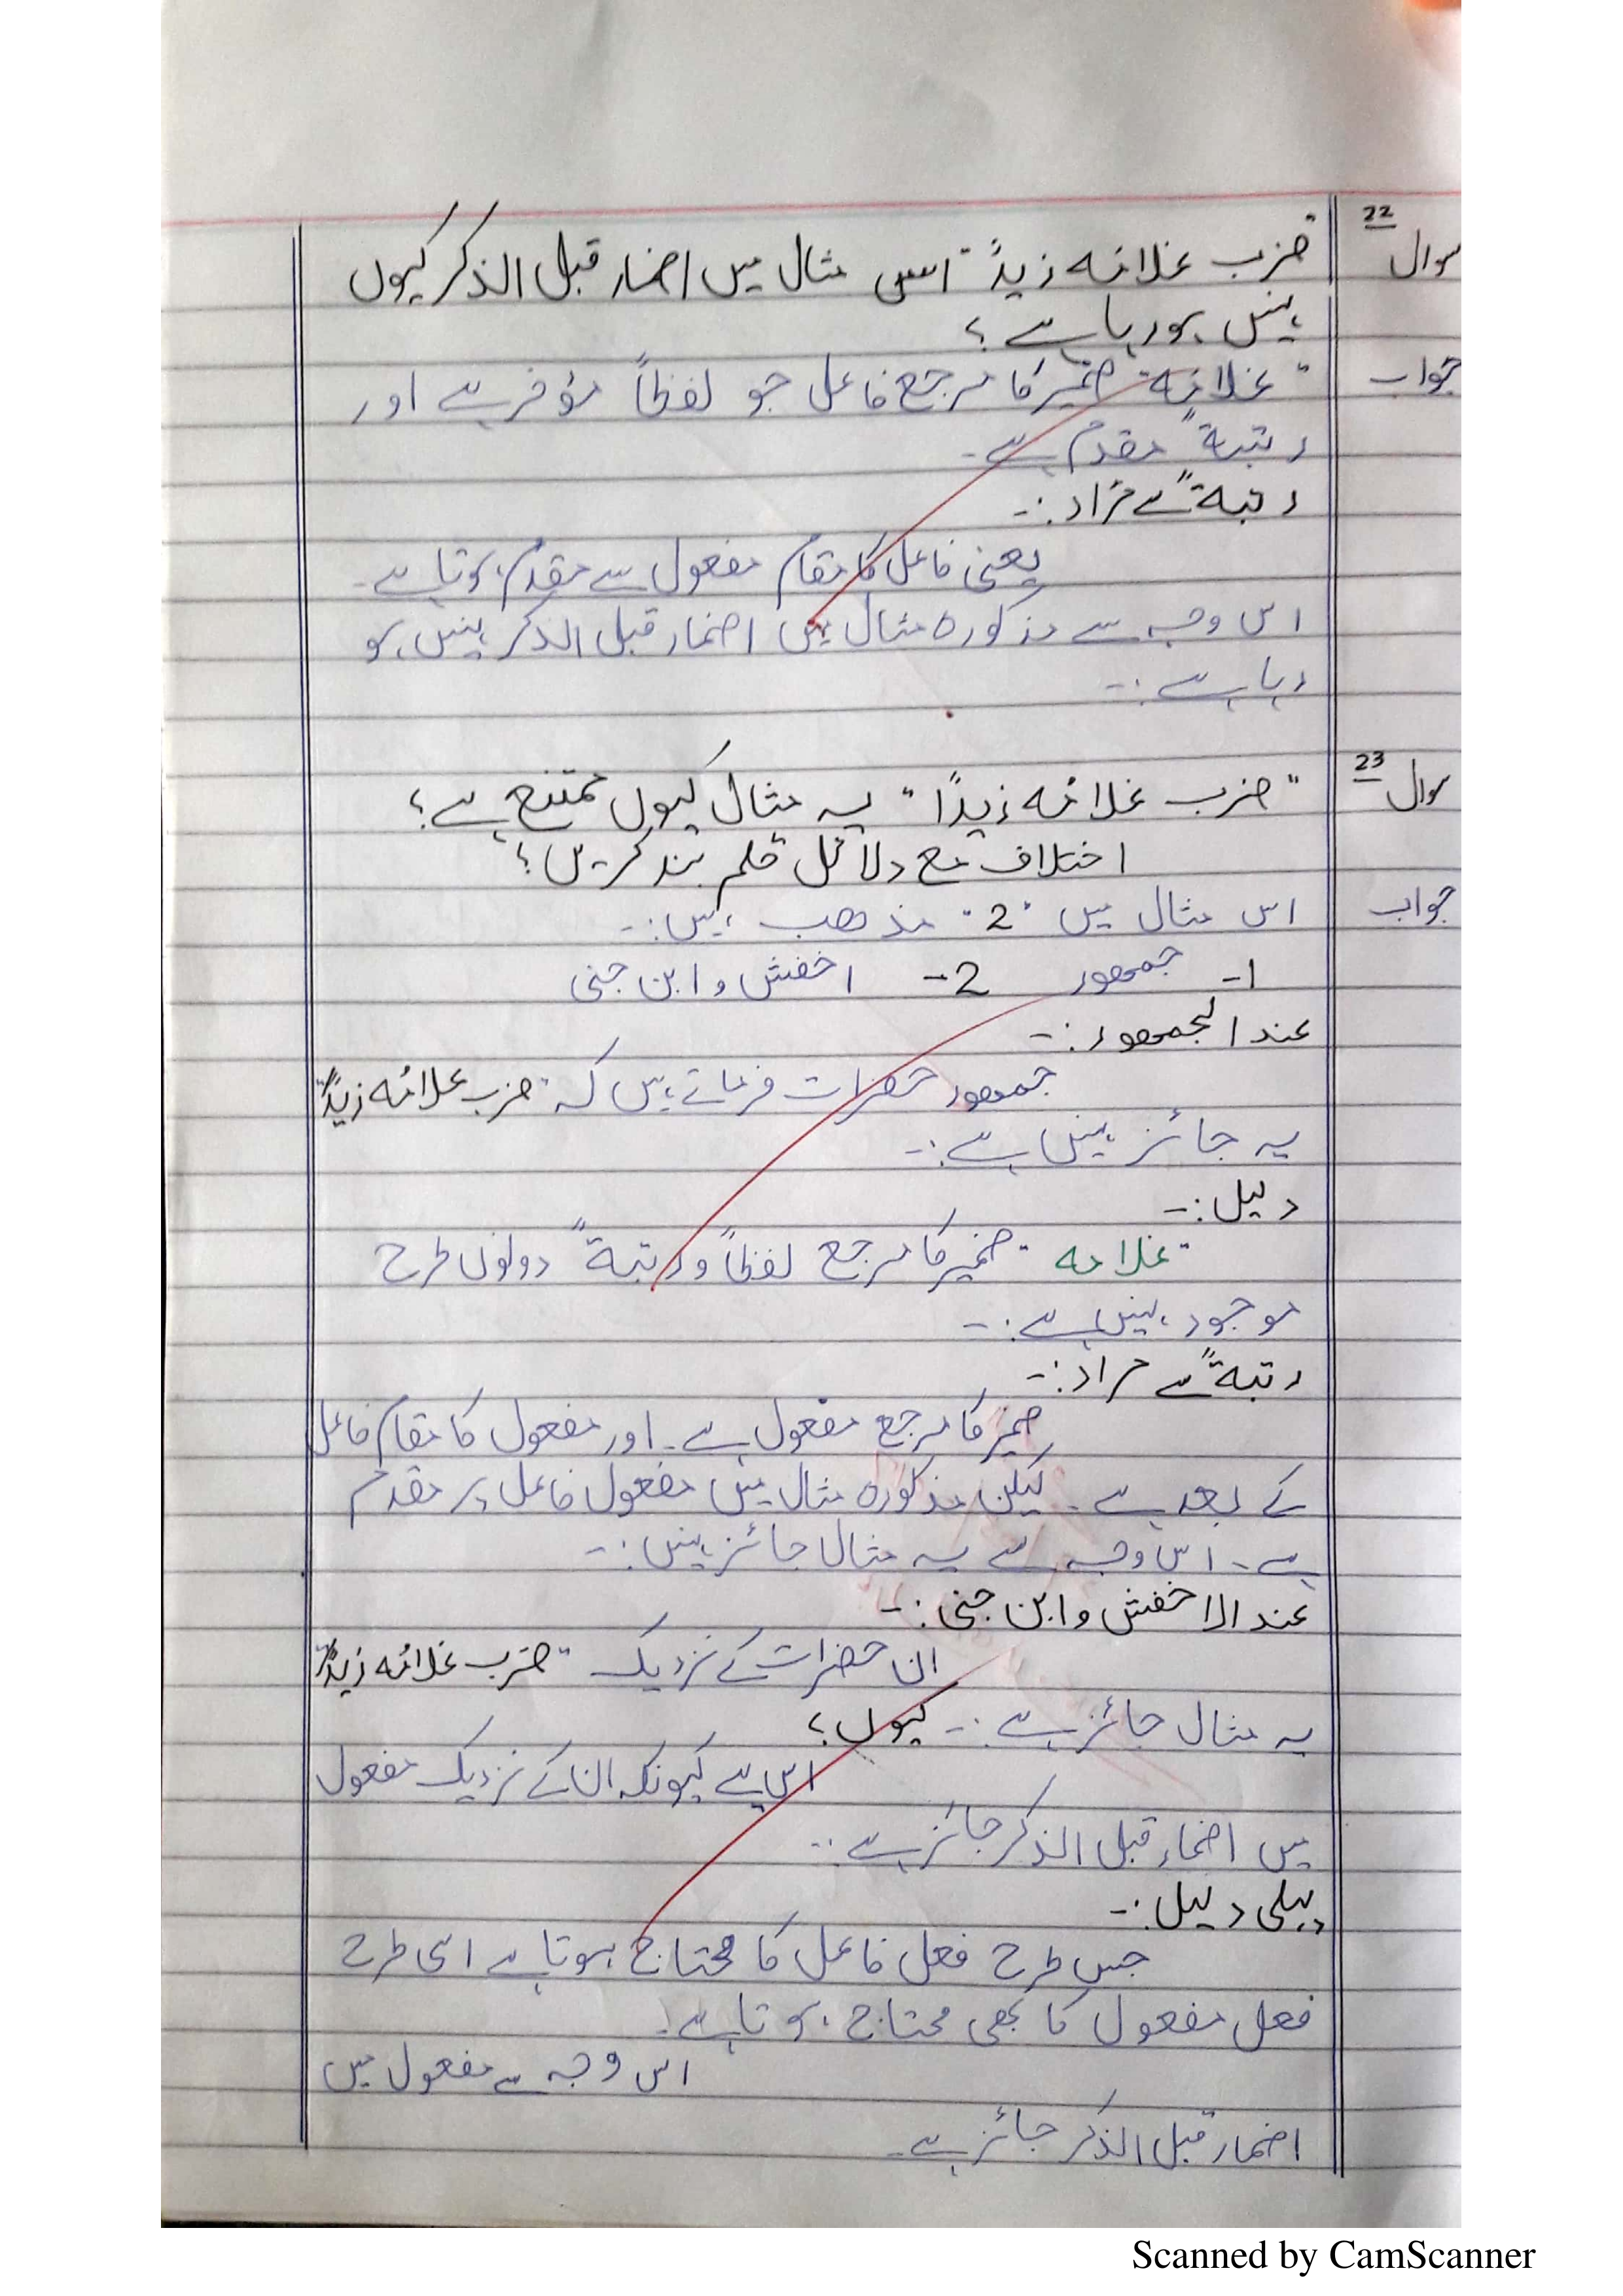 سوال 22 "ضرب غلامَہ زیدٌ" اس مثال میں اضمار قبل الذکر کیوں
نہیں ہو رہا ہے؟
جواب "غلامَہ" ضمیر کا مرجع فاعل جو لفظاً مؤخر ہے اور
رتبۃً مقدم ہے۔
رتبۃً سے مراد:-
یعنی فاعل کا مقام مفعول سے مقدم ہوتا ہے۔
اس وجہ سے مذکورہ مثال میں اضمار قبل الذکر نہیں ہو
رہا ہے:-
سوال 23 "ضرب غلامُہ زیدًا" یہ مثال کیوں ممتنع ہے؟
اختلاف مع دلائل قلم بند کریں؟
جواب اس مثال میں "2" مذھب ہیں:-
1- جمھور 2- اخفش و ابن جنی
عند الجمھور:-
جمھور حضرات فرماتے ہیں کہ "ضرب غلامُہ زیدًا"
یہ جائز نہیں ہے:-
دلیل:-
"غلامہ" ضمیر کا مرجع لفظاً و رتبۃً دونوں طرح
موجود نہیں ہے:-
رتبۃً سے مراد:-
ضمیر کا مرجع مفعول ہے۔ اور مفعول کا مقام فاعل
کے بعد ہے۔ لیکن مذکورہ مثال میں مفعول فاعل پر مقدم
ہے۔ اس وجہ سے یہ مثال جائز نہیں:-
عند الاخفش و ابن جنی:-
ان حضرات کے نزدیک "ضرب غلامُہ زیدًا"
یہ مثال جائز ہے:- کیوں؟
اس لیے کیونکہ ان کے نزدیک مفعول
میں اضمار قبل الذکر جائز ہے:-
پہلی دلیل:-
جس طرح فعل فاعل کا محتاج ہوتا ہے اسی طرح
فعل مفعول کا بھی محتاج ہوتا ہے۔
اس وجہ سے مفعول میں
اضمار قبل الذکر جائز ہے۔
Scanned by CamScanner